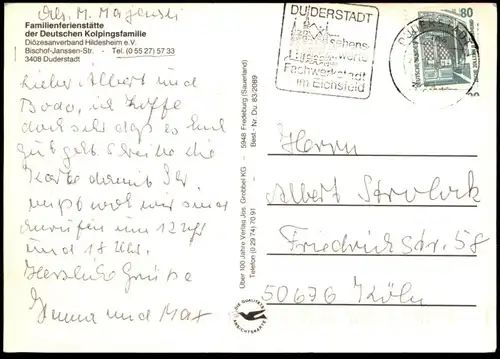 Abs. M. Majewski
Familienferienstätte
der Deutschen Kolpingsfamilie
Diözesanverband Hildesheim e.V.
Bischof-Janssen-Str. · Tel. (0 55 27) 57 33
3408 Duderstadt
Lieber Albert und
Bodo, ich hoffe
doch sehr daß es Euch
gut geht. Schreibe die
Karte damit Ihr
wißt wo wir sind
anrufen um 12 Uhr
und 18 Uhr.
Herzliche Grüße
Hanna und Max
Über 100 Jahre Verlag Jos. Grobbel KG - 5948 Fredeburg (Sauerland)
Telefon (0 29 74) 70 91 · Best.-Nr. Du 83/2089
DIE QUALITÄTS
ANSICHTSKARTE
DUDERSTADT
sehens-
werte
Fachwerkstadt
im Eichsfeld
80
Herrn
Albert
Friedrichstr. 58
50676 Köln